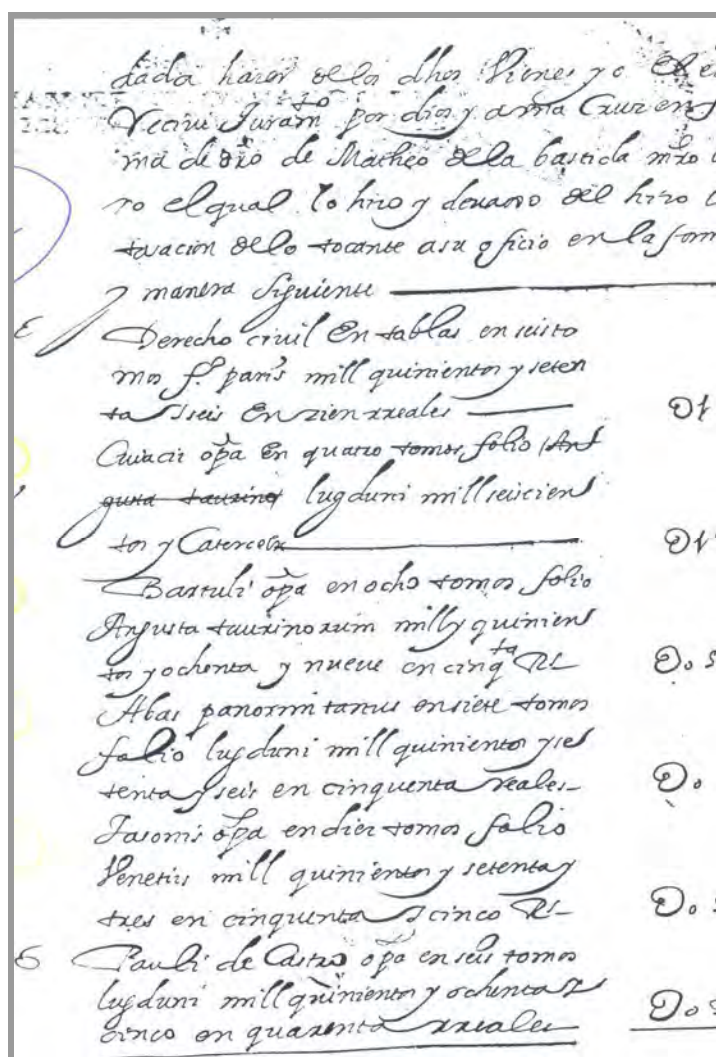 dada hazer de los dhos Vienes yo el
Vecivi Juramto por dios y a una Cruz en
ma de dro de Matheo de la bastida mro
ro el qual lo hizo y devaxo del hizo
tasacion de lo tocante a su oficio en la for
y manera siguiente
Derecho civil En tablas en seis to
mos fo paris mill quinientos y seten
ta y seis En zien rreales
Cuiacii opa en quatro tomos folio Au
gusta taurino lugduni mill seiscien
tos y Catorce
Bartuli opa en ocho tomos folio
Augusta taurinorum mill y quinien
tos y ochenta y nueve en cinqta Rs
Abas panormitanus en siete tomos
folio lugduni mill quinientos y se
tenta y seis en cinquenta reales
Jasonis opa en diez tomos folio
Venetiis mill quinientos y setenta y
tres en cinquenta y cinco Rs
Pauli de Castro opa en seis tomos
lugduni mill quinientos y ochenta y
cinco en quarenta rreales